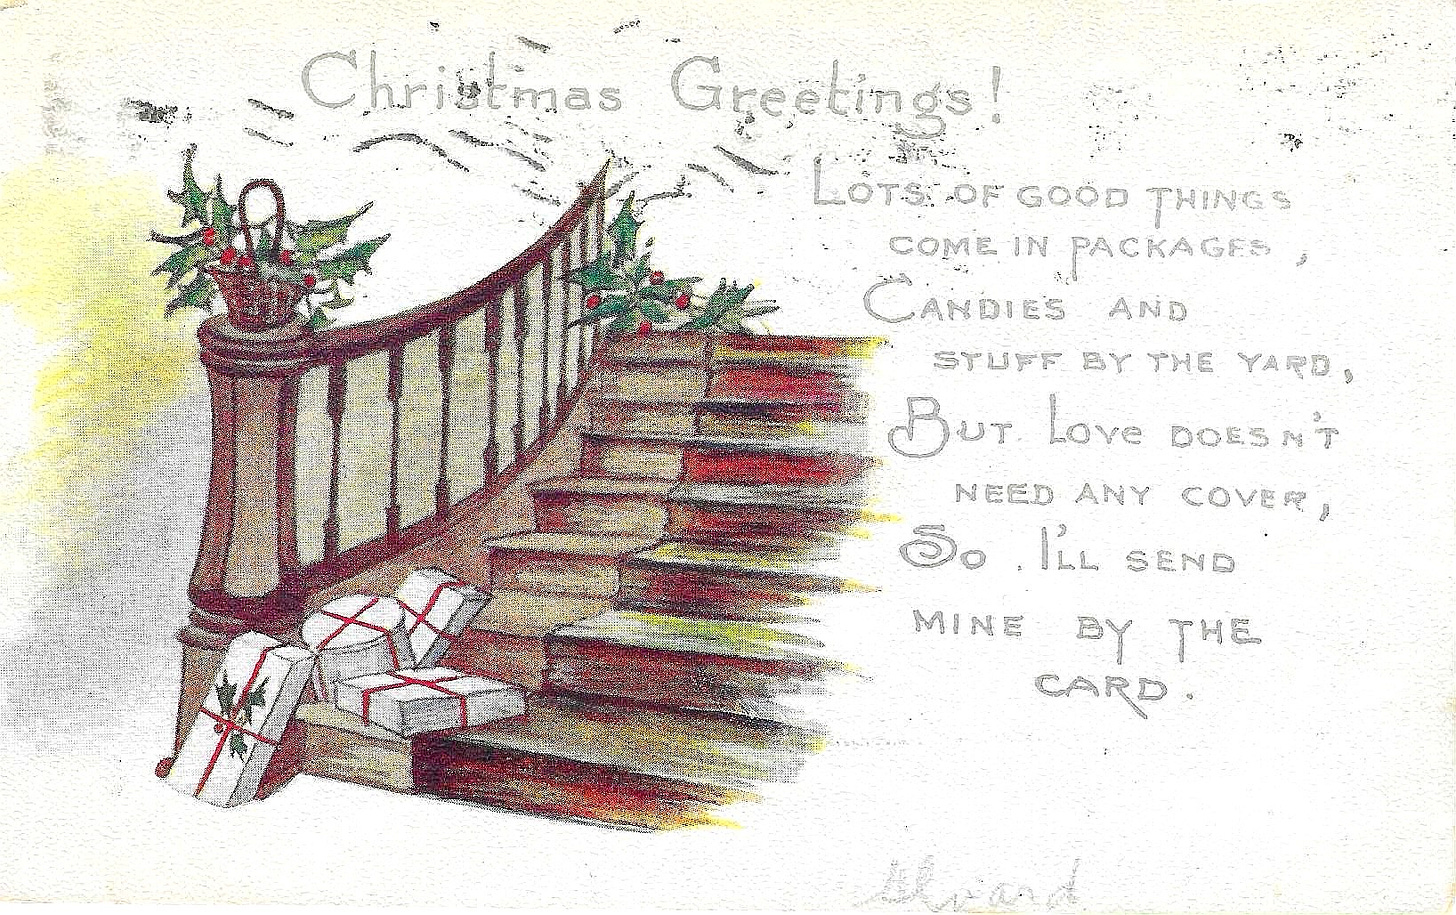 Christmas Greetings!
LOTS OF GOOD THINGS
COME IN PACKAGES,
CANDIES AND
STUFF BY THE YARD,
BUT Love DOESN'T
NEED ANY COVER,
So I'LL SEND
MINE BY THE
CARD.